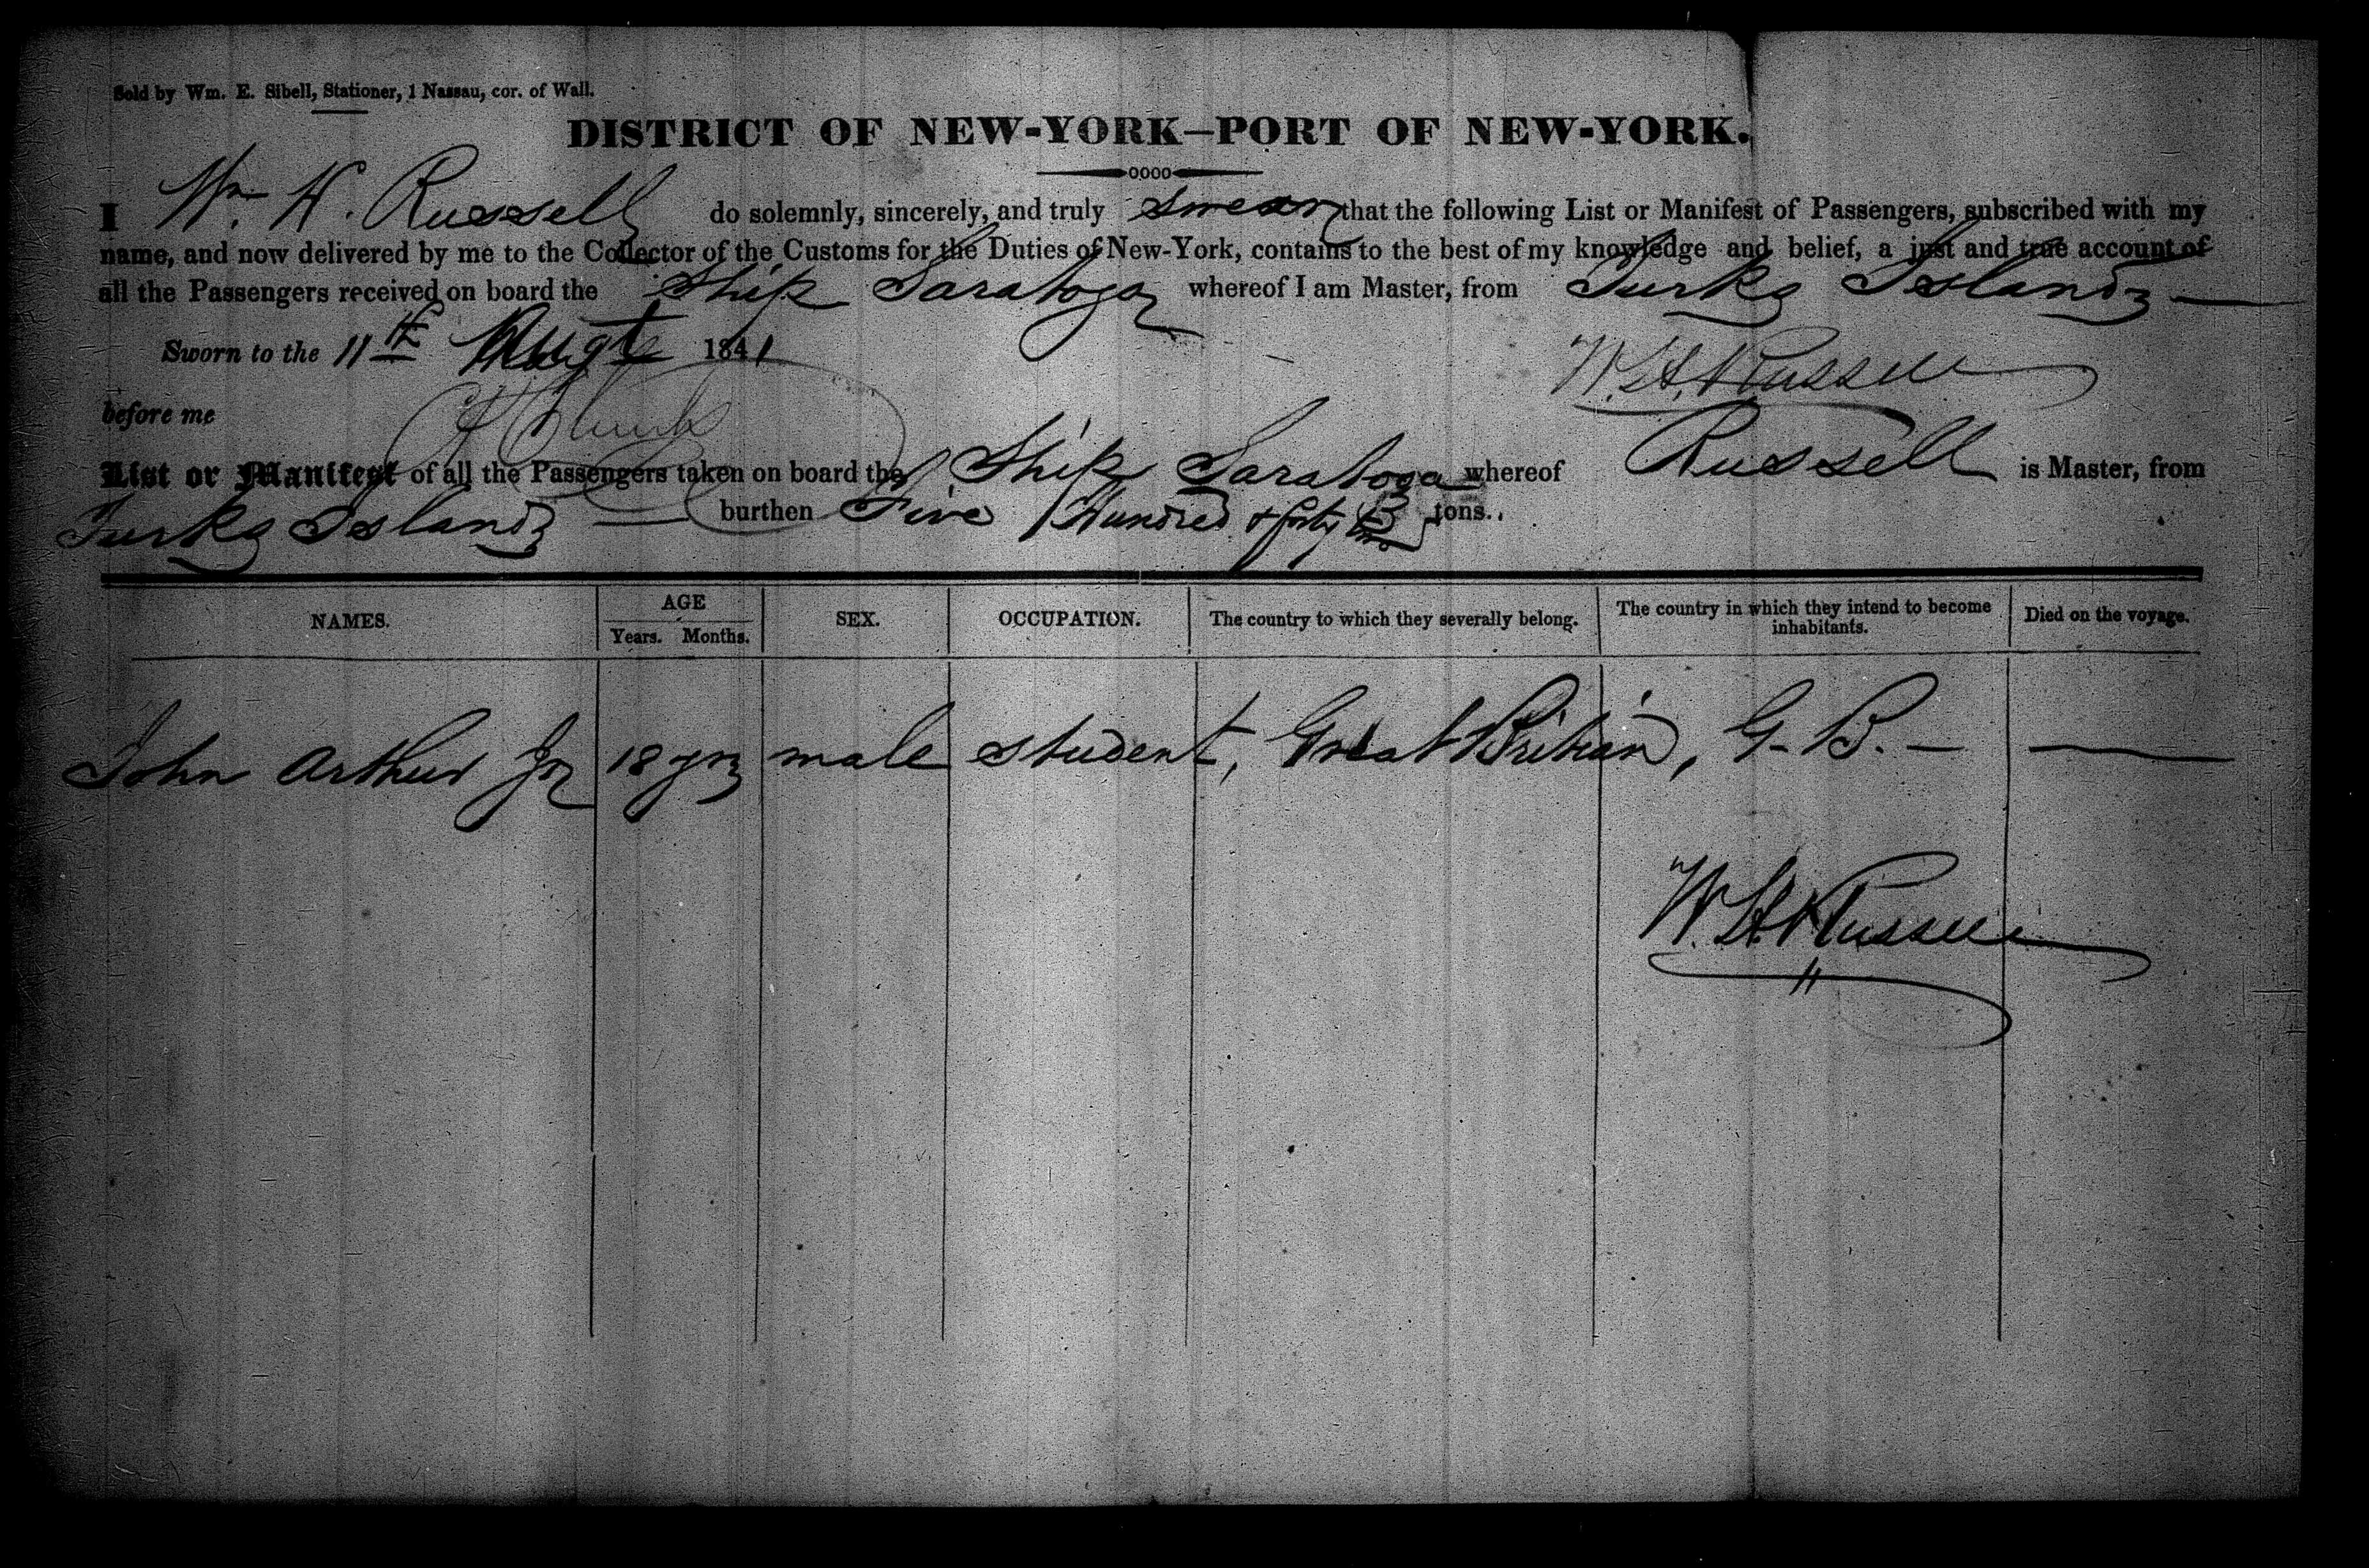 Sold by Wm. E. Sibell, Stationer, 1 Nassau, cor. of Wall.
DISTRICT OF NEW-YORK—PORT OF NEW-YORK.
I Wm. H. Russell do solemnly, sincerely, and truly swear that the following List or Manifest of Passengers, subscribed with my
name, and now delivered by me to the Collector of the Customs for the Duties of New-York, contains to the best of my knowledge and belief, a just and true account of
all the Passengers received on board the Ship Saratoga whereof I am Master, from Turks Island
Sworn to the 11th Augt 1841
W. H. Russell
before me
List or Manifest of all the Passengers taken on board the Ship Saratoga whereof Russell is Master, from
Turks Island burthen Five Hundred & forty two tons.
NAMES. AGE Years. Months. SEX. OCCUPATION. The country to which they severally belong. The country in which they intend to become inhabitants. Died on the voyage.
John Arthur Jr 18 yrs male student, Great Britian, G. B. — —
W. H. Russell